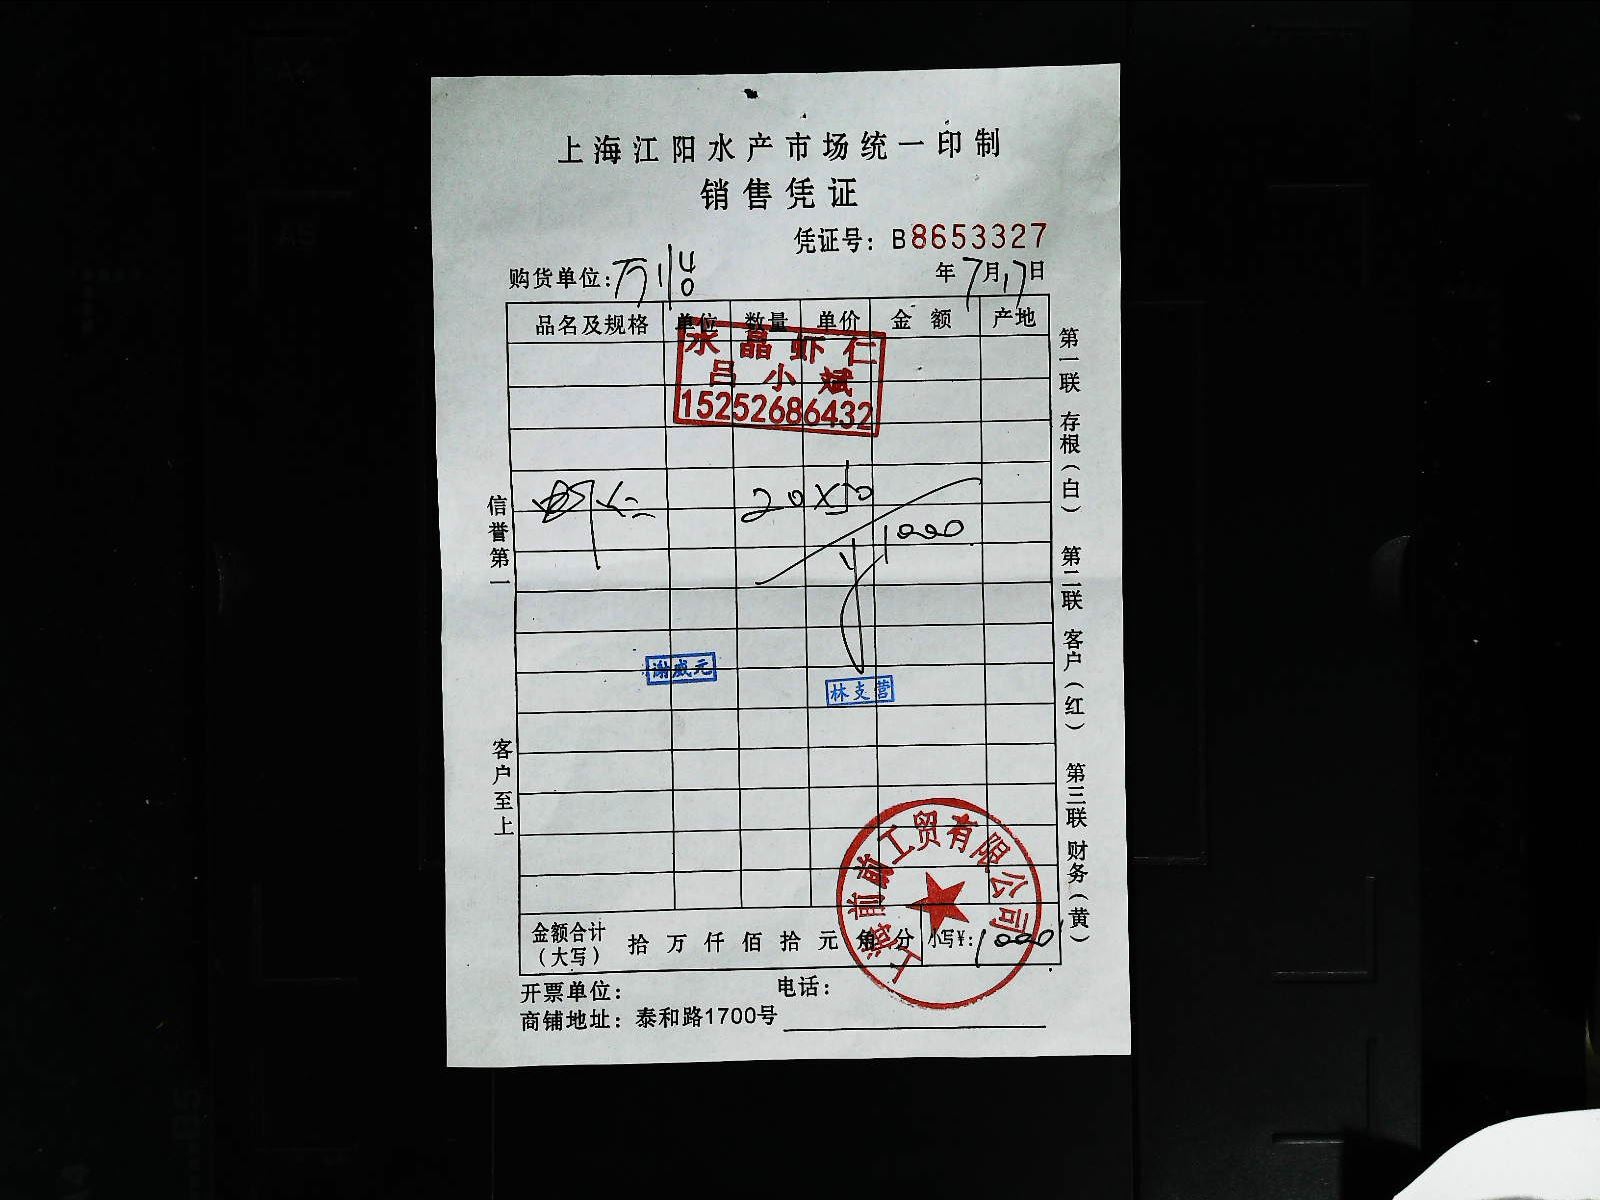 上海江阳水产市场统一印制
销售凭证
凭证号：B8653327
购货单位： 年7月17日
品名及规格 单位 数量 单价 金额 产地
永晶虾仁
吕小斌
15252686432
虾仁 20X50
1000
谢威元
林支营
金额合计（大写） 拾万仟佰拾元角分 小写¥：1000
开票单位： 电话：
商铺地址：泰和路1700号
信誉第一
客户至上
第一联 存根（白） 第二联 客户（红） 第三联 财务（黄）